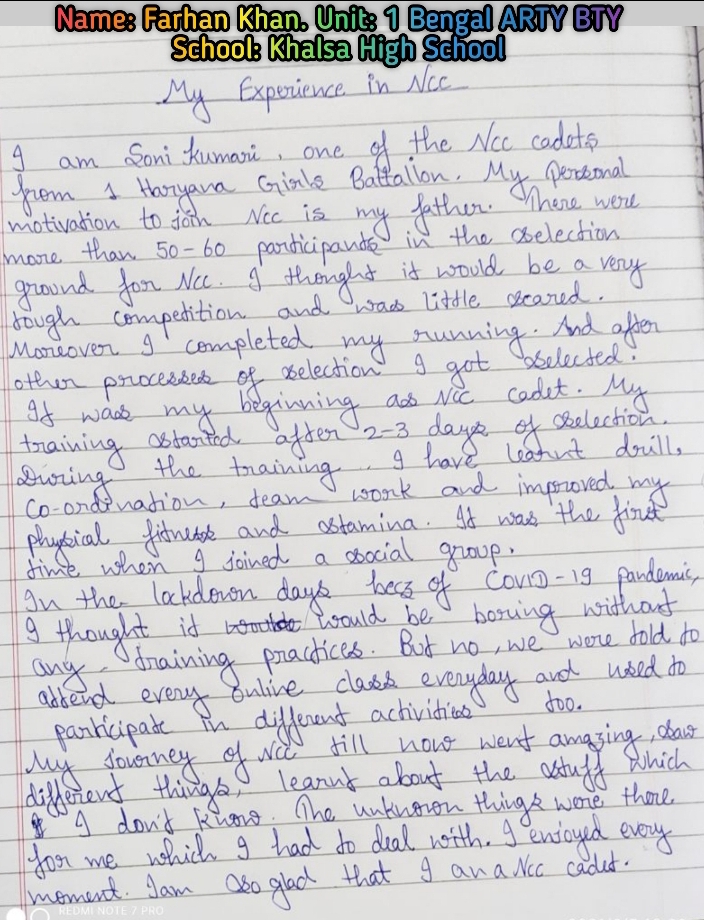 Name: Farhan Khan. Unit: 1 Bengal ARTY BTY
School: Khalsa High School
My Experience in Ncc
I am Soni Kumari, one of the Ncc cadets
from 1 Haryana Girls Battalion. My personal
motivation to join Ncc is my father. There were
more than 50-60 participants in the selection
ground for Ncc. I thought it would be a very
tough competition and was little scared.
Moreover I completed my running. And after
other processes of selection I got selected.
It was my beginning as Ncc cadet. My
training started after 2-3 days of selection.
During the training, I have learnt drill,
co-ordination, team work and improved my
physical fitness and stamina. It was the first
time when I joined a social group.
In the lockdown days becz of COVID-19 pandemic,
I thought it would be boring without
any training practices. But no, we were told to
attend every online class everyday and used to
participate in different activities too.
My journey of Ncc till now went amazing, saw
different things, learnt about the stuff which
I don't know. The unknown things were there
for me which I had to deal with. I enjoyed every
moment. I am so glad that I an a Ncc cadet.
REDMI NOTE 7 PRO